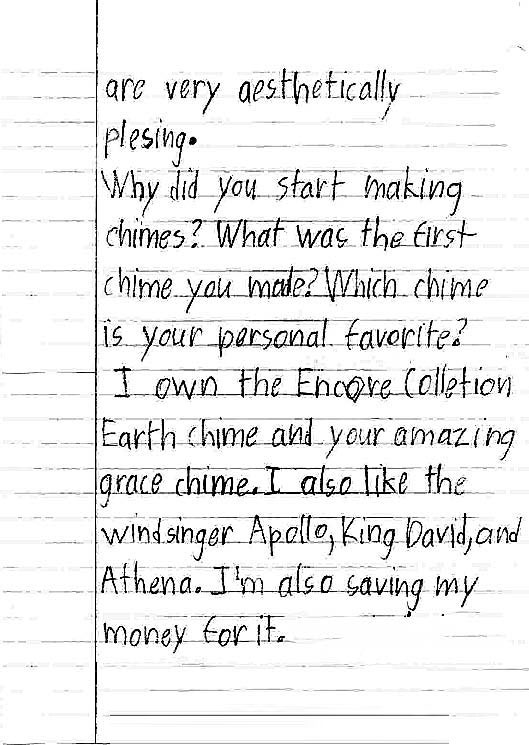 are very aesthetically
plesing.
Why did you start making
chimes? What was the first
chime you made? Which chime
is your personal favorite?
I own the Encore Colletion
Earth chime and your amazing
grace chime. I also like the
windsinger Apollo, King David, and
Athena. I'm also saving my
money for it.